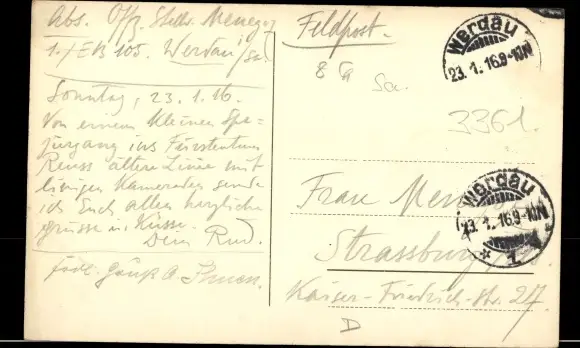 Abs. Offz. Stellv. Menegoz
1./EB 105. Werdau/Sa.
Sonntag, 23.1.16.
Von einem kleinen Spa=
ziergang ins Fürstentum
Reuss ältere Linie mit
einigen Kameraden sende
ich Euch allen herzliche
Grüsse u. Küsse.
Dein Rud.
Feldpost.
8 Sa.
3361.
Werdau
23.1.16.9-10V
Frau
Strassburg
Kaiser-Friedrich-Str. 27
D
Werdau
23.1.16.9-10V
* 1